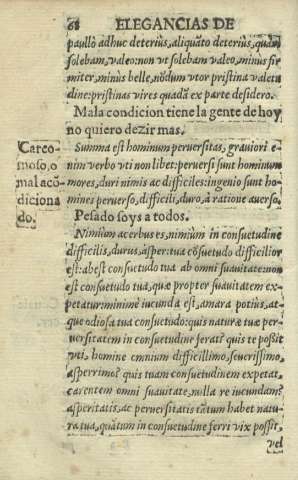 68 ELEGANCIAS DE
paullò adhuc deteriùs, aliquãto deteriùs, quàm
solebam, valeo: non vt solebam valeo, minus fir
miter, minùs belle, nõdum vtor pristina valetu
dine: pristinas vires quadã ex parte desidero.
Mala condicion tiene la gente de hoy
no quiero dezir mas.
Carco-
moso, o
mal acõ-
diciona
do.
Summa est hominum peruersitas, grauiori e-
nim verbo vti non libet: peruersi sunt hominum
mores, duri nimis ac difficiles: ingenio sunt ho-
mines peruerso, difficili, duro, à ratione auerso.
Pesado soys a todos.
Nimiùm acerbus es, nimiùm in consuetudine
difficilis, durus, àsper: tua cõsuetudo difficilior
est: abest consuetudo tua ab omni suauitate: non
est consuetudo tua, quæ propter suauitatem ex-
petatur: minimè iucunda est, amara potiùs, at-
que odiosa tua consuetudo: quis naturæ tuæ per-
uersitatem in consuetudine ferat? quis te possit
vti, homine omnium difficillimo, seuerissimo,
asperrimo? quis tuam consuetudinem expetat,
carentem omni suauitate, nulla re iucundam?
asperitatis, ac peruersitatis tãtum habet natu-
ra tua, quãtum in consuetudine ferri vix possit,
vel